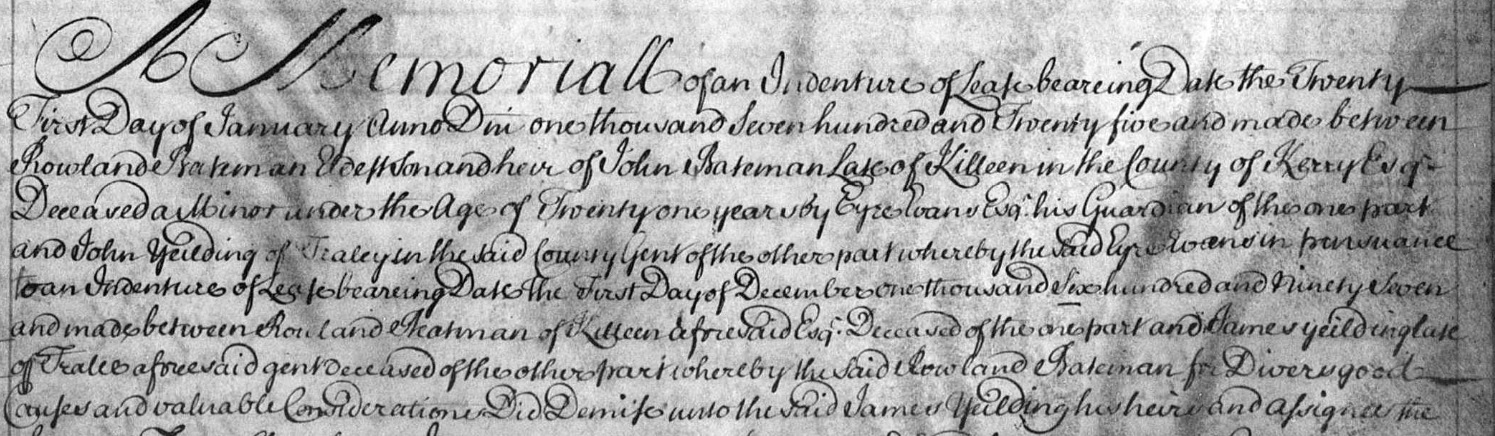 A Memoriall of an Indenture of Lease beareing Date the Twenty
First Day of January Anno Dni one thousand Seven hundred and Twenty five and made between
Rowland Bateman Eldest Son and heir of John Bateman Late of Killeen in the County of Kerry Esqr
Deceased a Minor under the Age of Twenty one years by Eyre Evans Esqr his Guardian of the one part
and John Yeilding of Traley in the said County Gent of the other part whereby the said Eyre Evans in pursuance
to an Indenture of Lease beareing Date the First Day of December one thousand Six hundred and Ninety Seven
and made between Rowland Beatman of Killeen aforesaid Esqr Deceased of the one part and James yeilding late
of Tralee aforesaid gent deceased of the other part whereby the said Rowland Bateman for Divers good
Causes and valuable Considerations Did Demise unto the said James Yeilding his heirs and assignes the